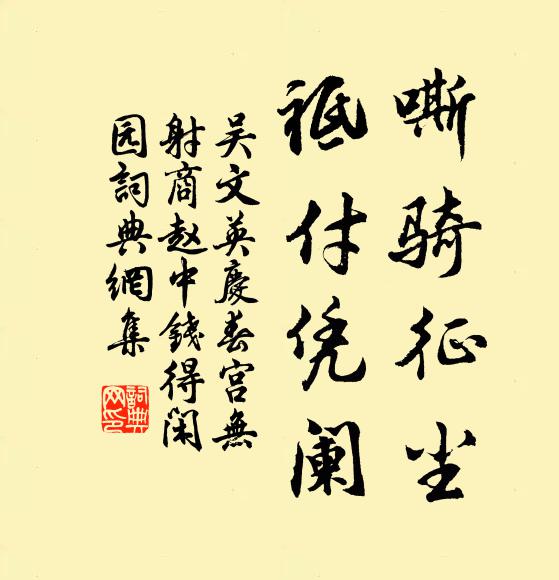 嘶骑征尘
祗付凭阑
吴文英慶春宫無
射商赵中錢得闲
园詞典網集
詞典
网印